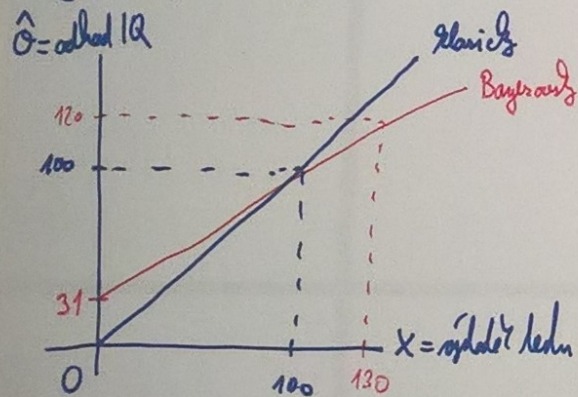 θ̂ = odhad IQ
klasický
Bayesovský
120
100
31
0
100
130
X = výsledek testu